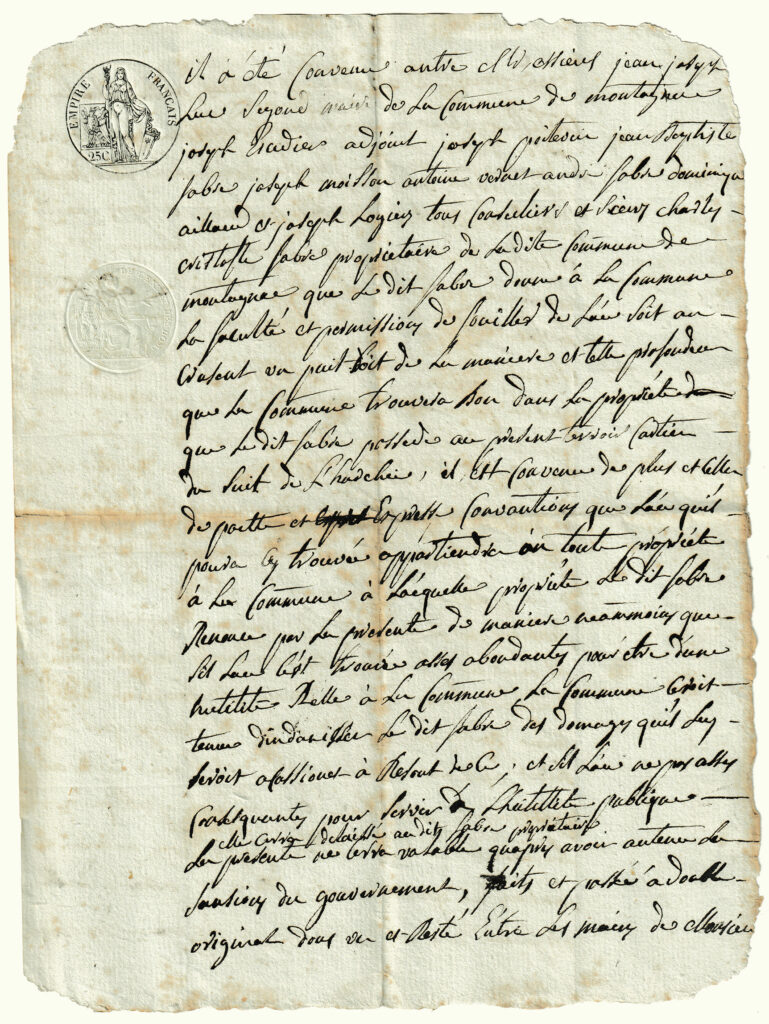 EMPIRE FRANÇAIS
25C
il á été Convenu antre Messieurs jean joseph
Luc Segond maire de La Commune de montagnac
joseph Escudier adjoint joseph poitevin jean Baptiste
fabre joseph moisson antoine verdet andré fabre dominique
aillaud et joseph Logier tous Conseliers et sieur charles
cristofle fabre propriétaire de Ladite Commune de
montagnac que Le dit fabre donne à La Commune
La faculté et permissions de fouiller de L'éau soit an
Crusent un puit soit de La maniere et telle profondeur
que La Commune trouvera bon dans La propriété
que Le dit fabre possede au present terroir Cartier
du de ; il est Convenu de plus et
de pacte et Express Convantions que L'éau qu'il
poura trouvée appartiendra an toute propriété
à La Commune à Laequelle propriété Le dit fabre
Renonce par La presente de maniere neammoins que
sil Lau trouvée asses abondantes pour être d'une
hutilité Relle à La Commune La Commune seroit
tenue Le dit fabre des domages qu'il Luy
seroit à ; et sil L'éau ne pas asses
pour servir à L'hutillité publique
elle serra délaissé audit fabre propriétaire
La presente ne serra valable qu'apres avoir autenu La
santions du gouvernement, faits et passé à double
original dont un et Resté Entre Les mains de Monsieur